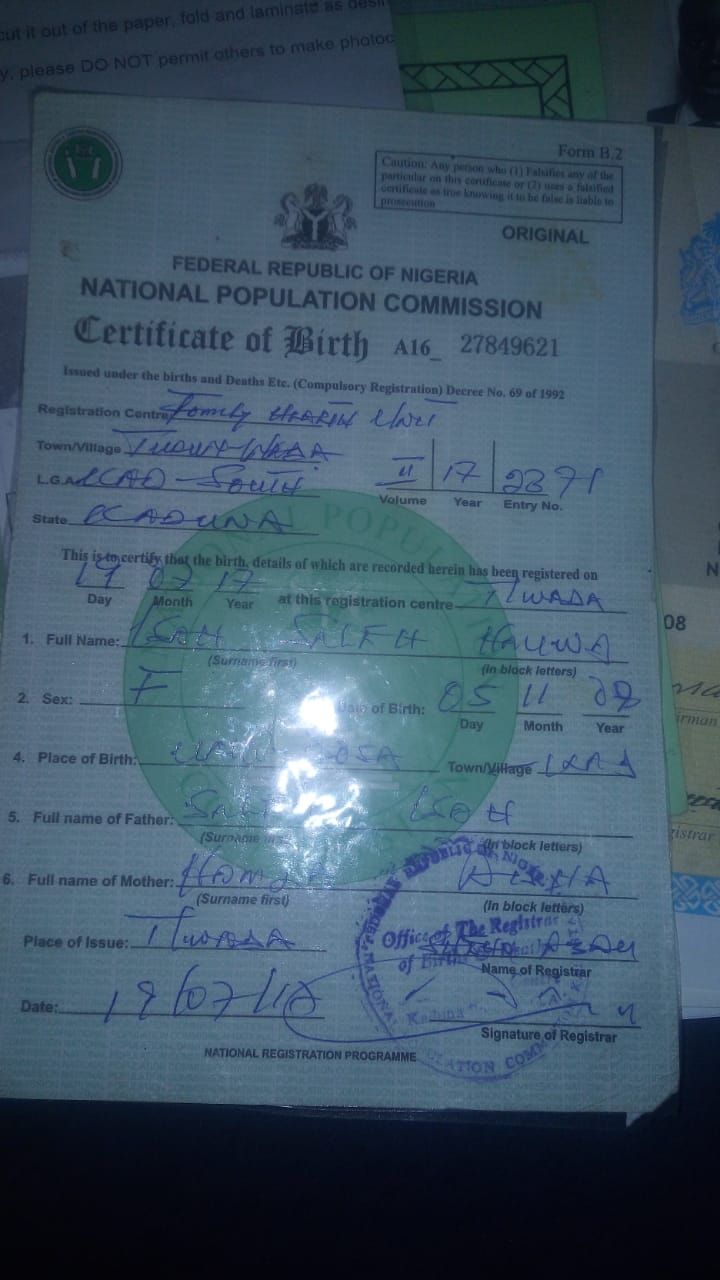 cut it out of the paper, fold and laminate as desir
y, please DO NOT permit others to make photoc
Form B.2
Caution: Any person who (1) Falsifies any of the
particular on this certificate or (2) uses a falsified
certificate as true knowing it to be false is liable to
prosecution
ORIGINAL
FEDERAL REPUBLIC OF NIGERIA
NATIONAL POPULATION COMMISSION
Certificate of Birth A16_ 27849621
Issued under the births and Deaths Etc. (Compulsory Registration) Decree No. 69 of 1992
Registration Centre Family HEARTH Unit
Town/Village TUDUN-WADA
L.G.A KAD-SOUTH II 17 2371
Volume Year Entry No.
State KADUNA
This is to certify that the birth, details of which are recorded herein has been registered on
19 07 17 at this registration centre T/WADA
Day Month Year
1. Full Name: ISAH SALEH HAUWA
(Surname first) (in block letters)
2. Sex: F Date of Birth: 05 11 08
Day Month Year
4. Place of Birth: Town/Village
5. Full name of Father: ISAH
(Surname first) (In block letters)
6. Full name of Mother:
(Surname first) (In block letters)
Place of Issue: T/WADA
Office of The Registrar
of Births
Name of Registrar
Date: 19/07/
Kaduna
Signature of Registrar
NATIONAL REGISTRATION PROGRAMME
08
irman
gistrar